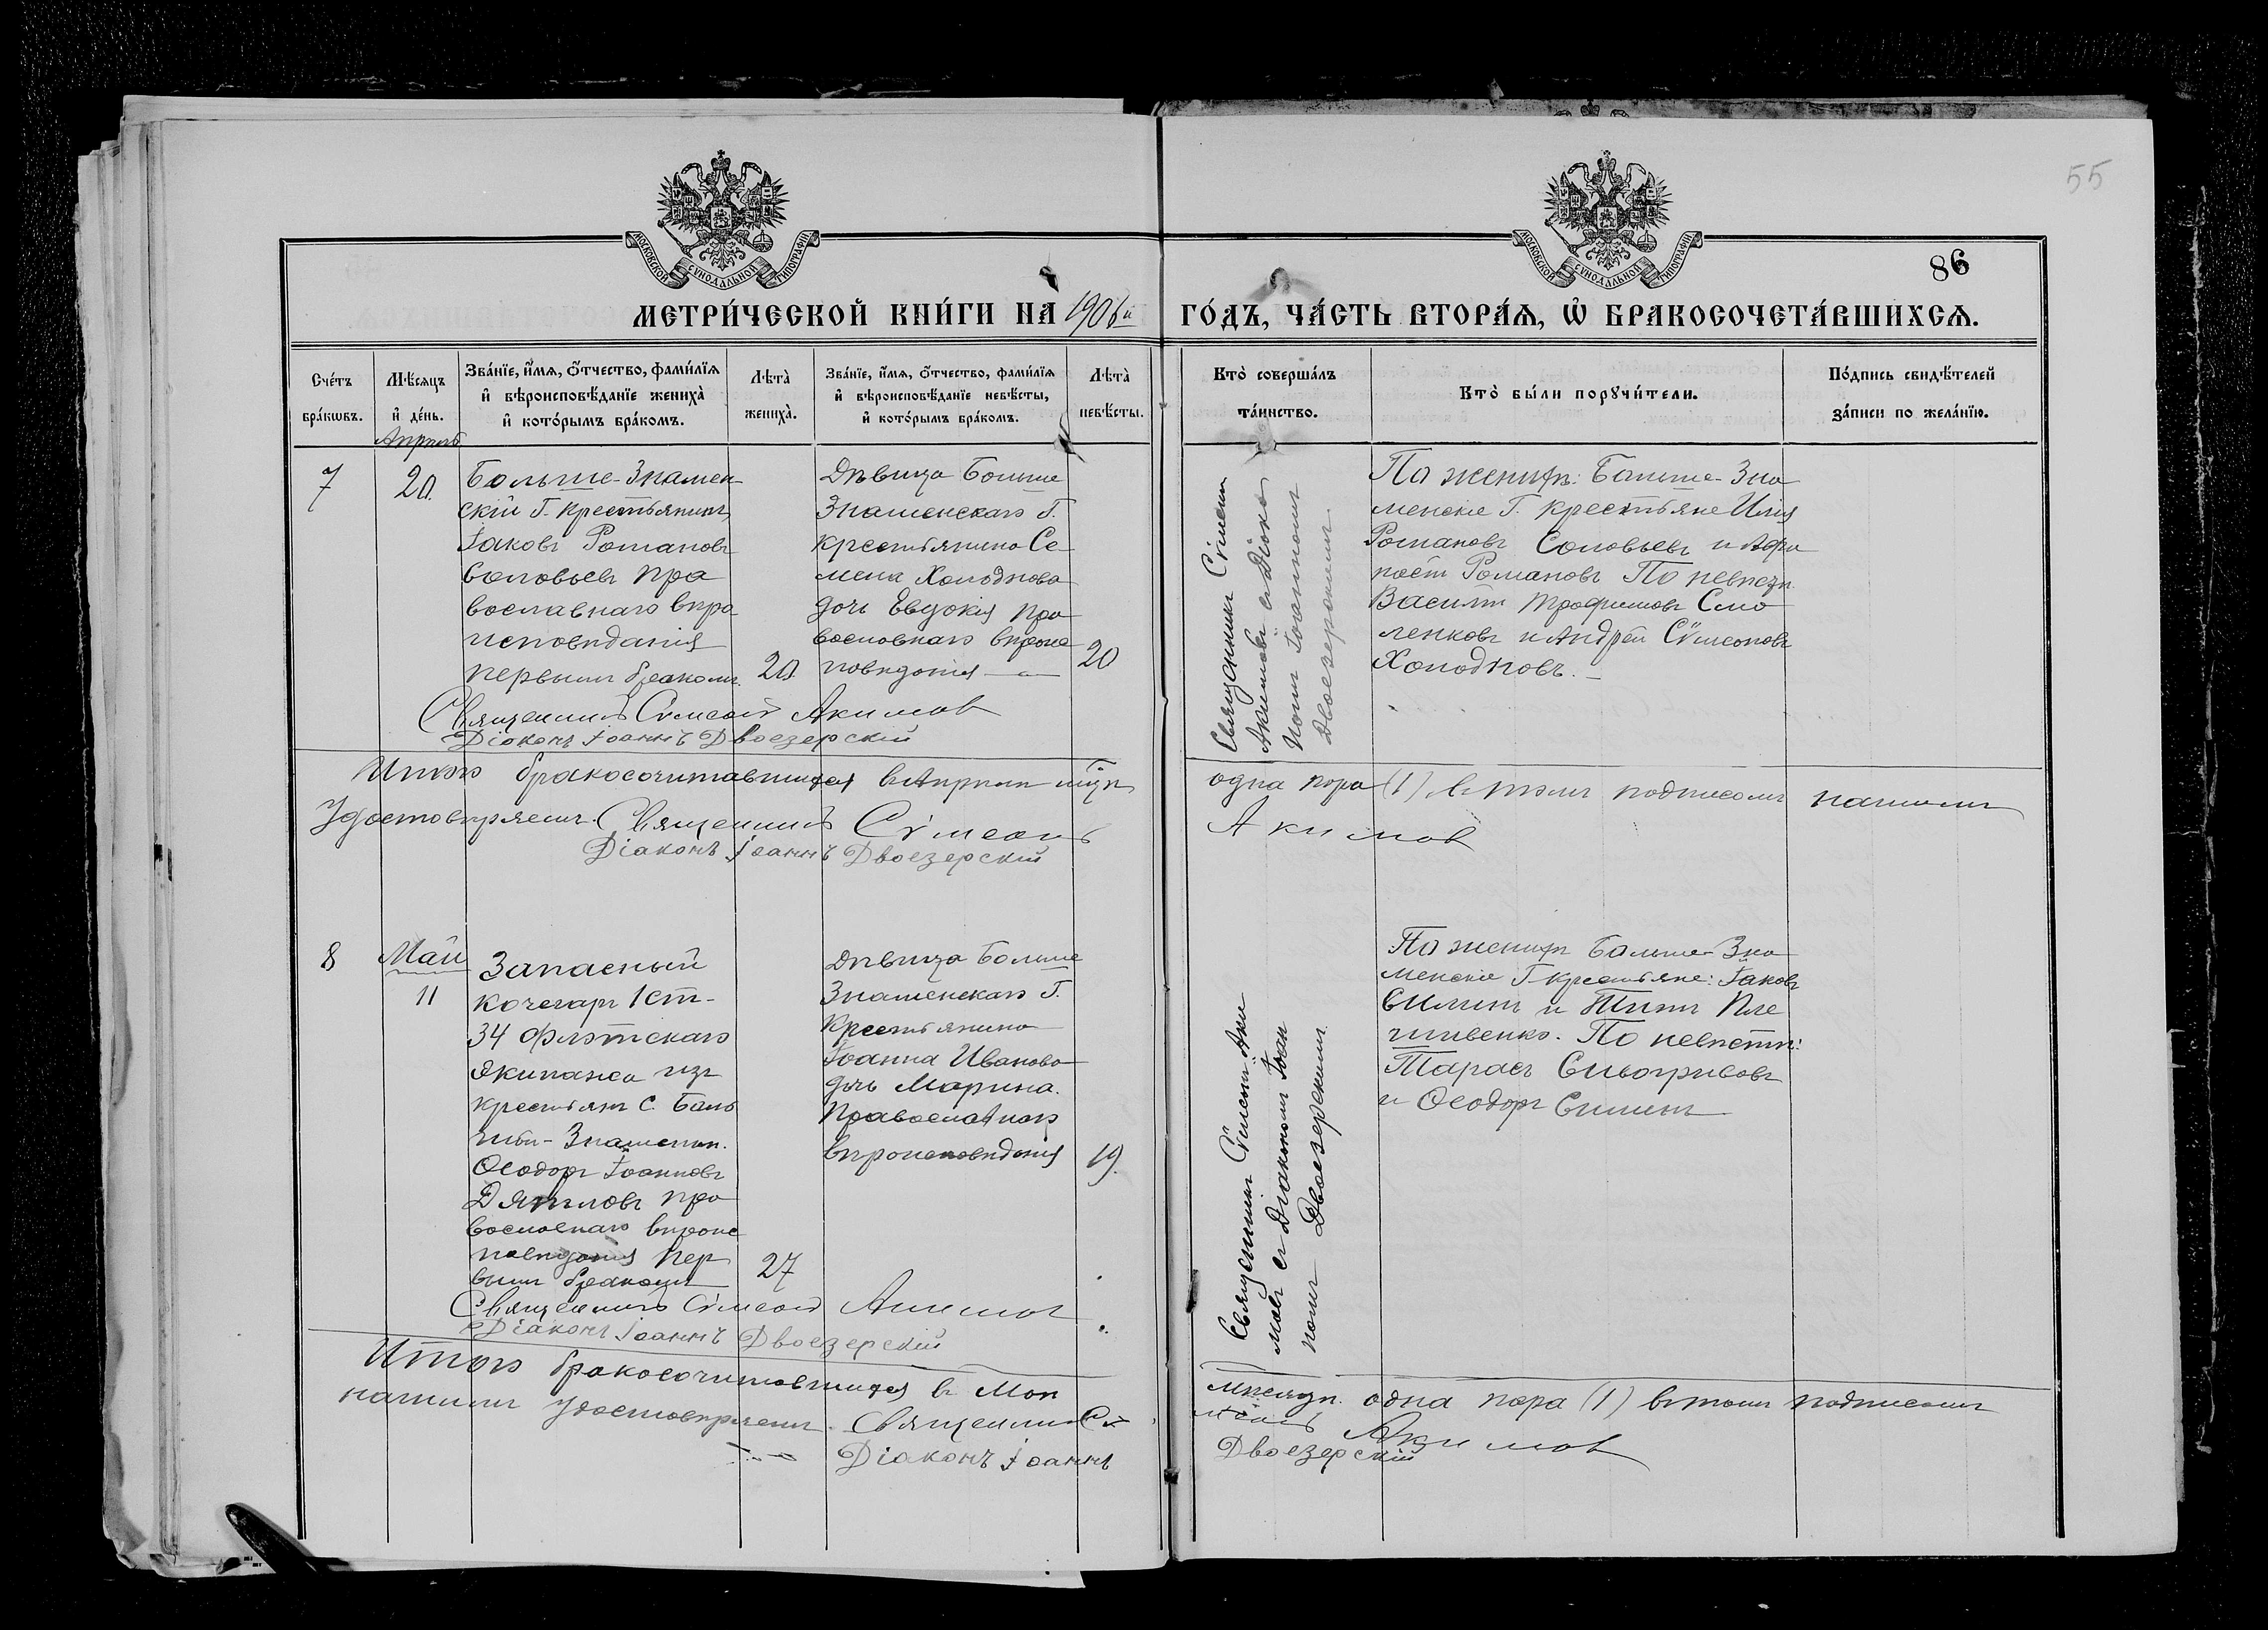 55
МОСКОВСКОЙ СѴНОДАЛЬНОЙ ТИПОГРАФІИ
МОСКОВСКОЙ СѴНОДАЛЬНОЙ ТИПОГРАФІИ
86
МЕТРИ́ЧЕСКОЙ КНИ́ГИ НА 1906й ГО́ДЪ, ЧА́СТЬ ВТОРА́Ѧ, Ѽ БРАКОСОЧЕТА́ВШИХСѦ.
Сче́тъ
бра́кѡвъ.
Мѣ́сяцъ
и҆ де́нь.
Зва́нїе, и҆́мѧ, ѻ҆́тчество, фами́лїѧ
и҆ вѣроисповѣ́данїе жениха̀
и҆ кото́рымъ бра́комъ.
Лѣта̀
жениха̀.
Зва́нїе, и҆́мѧ, ѻ҆́тчество, фами́лїѧ
и҆ вѣроисповѣ́данїе невѣ́сты,
и҆ кото́рымъ бра́комъ.
Лѣта̀
невѣ́сты.
Кто̀ соверша́лъ
та́инство.
Кто̀ бы́ли порꙋчи́тели.
По́дпись свидѣ́телей
за́писи по жела́нїю.
Апрель
7
20.
Больше-Знамен-
скій Г. крестьянинъ
Іаковъ Романовъ
Соловьевъ пра
вославнаго вѣро
исповѣданія
первымъ бракомъ.
20
Дѣвица Больше
Знаменскаго Г.
крестьянина Се-
мена Холоднова
дочь Евдокія пра
вославнаго вѣроис
повѣданія
20
Священникъ Сѵмеонъ
Акимовъ съ Діако
номъ Іоанномъ
Двоезерскимъ.
По женихѣ: Больше-Зна
менскіе Г. крестьяне Илія
Романовъ Соловьевъ и
Романовъ По невѣстѣ.
Василій Трофимовъ
и Андрей Сѵмеоновъ
Холодновъ.
Священникъ Сѵмеонъ Акимовъ
Діаконъ Іоаннъ Двоезерскій
Итого бракосочитавшихся въ Апрѣлѣ мцѣ одна пара (1) въ томъ подписомъ нашимъ
Удостовѣряемъ. Священникъ Сѵмеонъ Акимов
Діаконъ Іоаннъ Двоезерскій
8
Май
11
Запасный
кочегаръ 1 ст-
34 Флотскаго
Экипажа изъ
крестьянъ с. Боль
Знаменки.
Ѳеодоръ Іоанновъ
Дятловъ пра
вославнаго вѣроис
повѣданія пер
вымъ бракомъ
27
Дѣвица Больше
Знаменскаго Г.
Крестьянина
Іоанна Иванова
дочь Марина.
Православнаго
вѣроисповѣданія
19.
Священникъ Сѵмеонъ Аки
мовъ съ Діакономъ Іоан
номъ Двоезерскимъ.
По женихѣ Больше-Зна
менскіе Г. крестьяне: Іаковъ
и Титъ Пле
шивенко. По невѣстѣ:
Тарасъ
и Ѳеодоръ
Священникъ Сѵмеонъ Акимов
Діаконъ Іоаннъ Двоезерскій
Итого бракосочитавшихся въ Маѣ мѣсяцѣ. одна пара (1) въ томъ подписомъ
нашимъ удостовѣряемъ. Священникъ Сѵмеонъ Акимов
Діаконъ Іоаннъ Двоезерскій